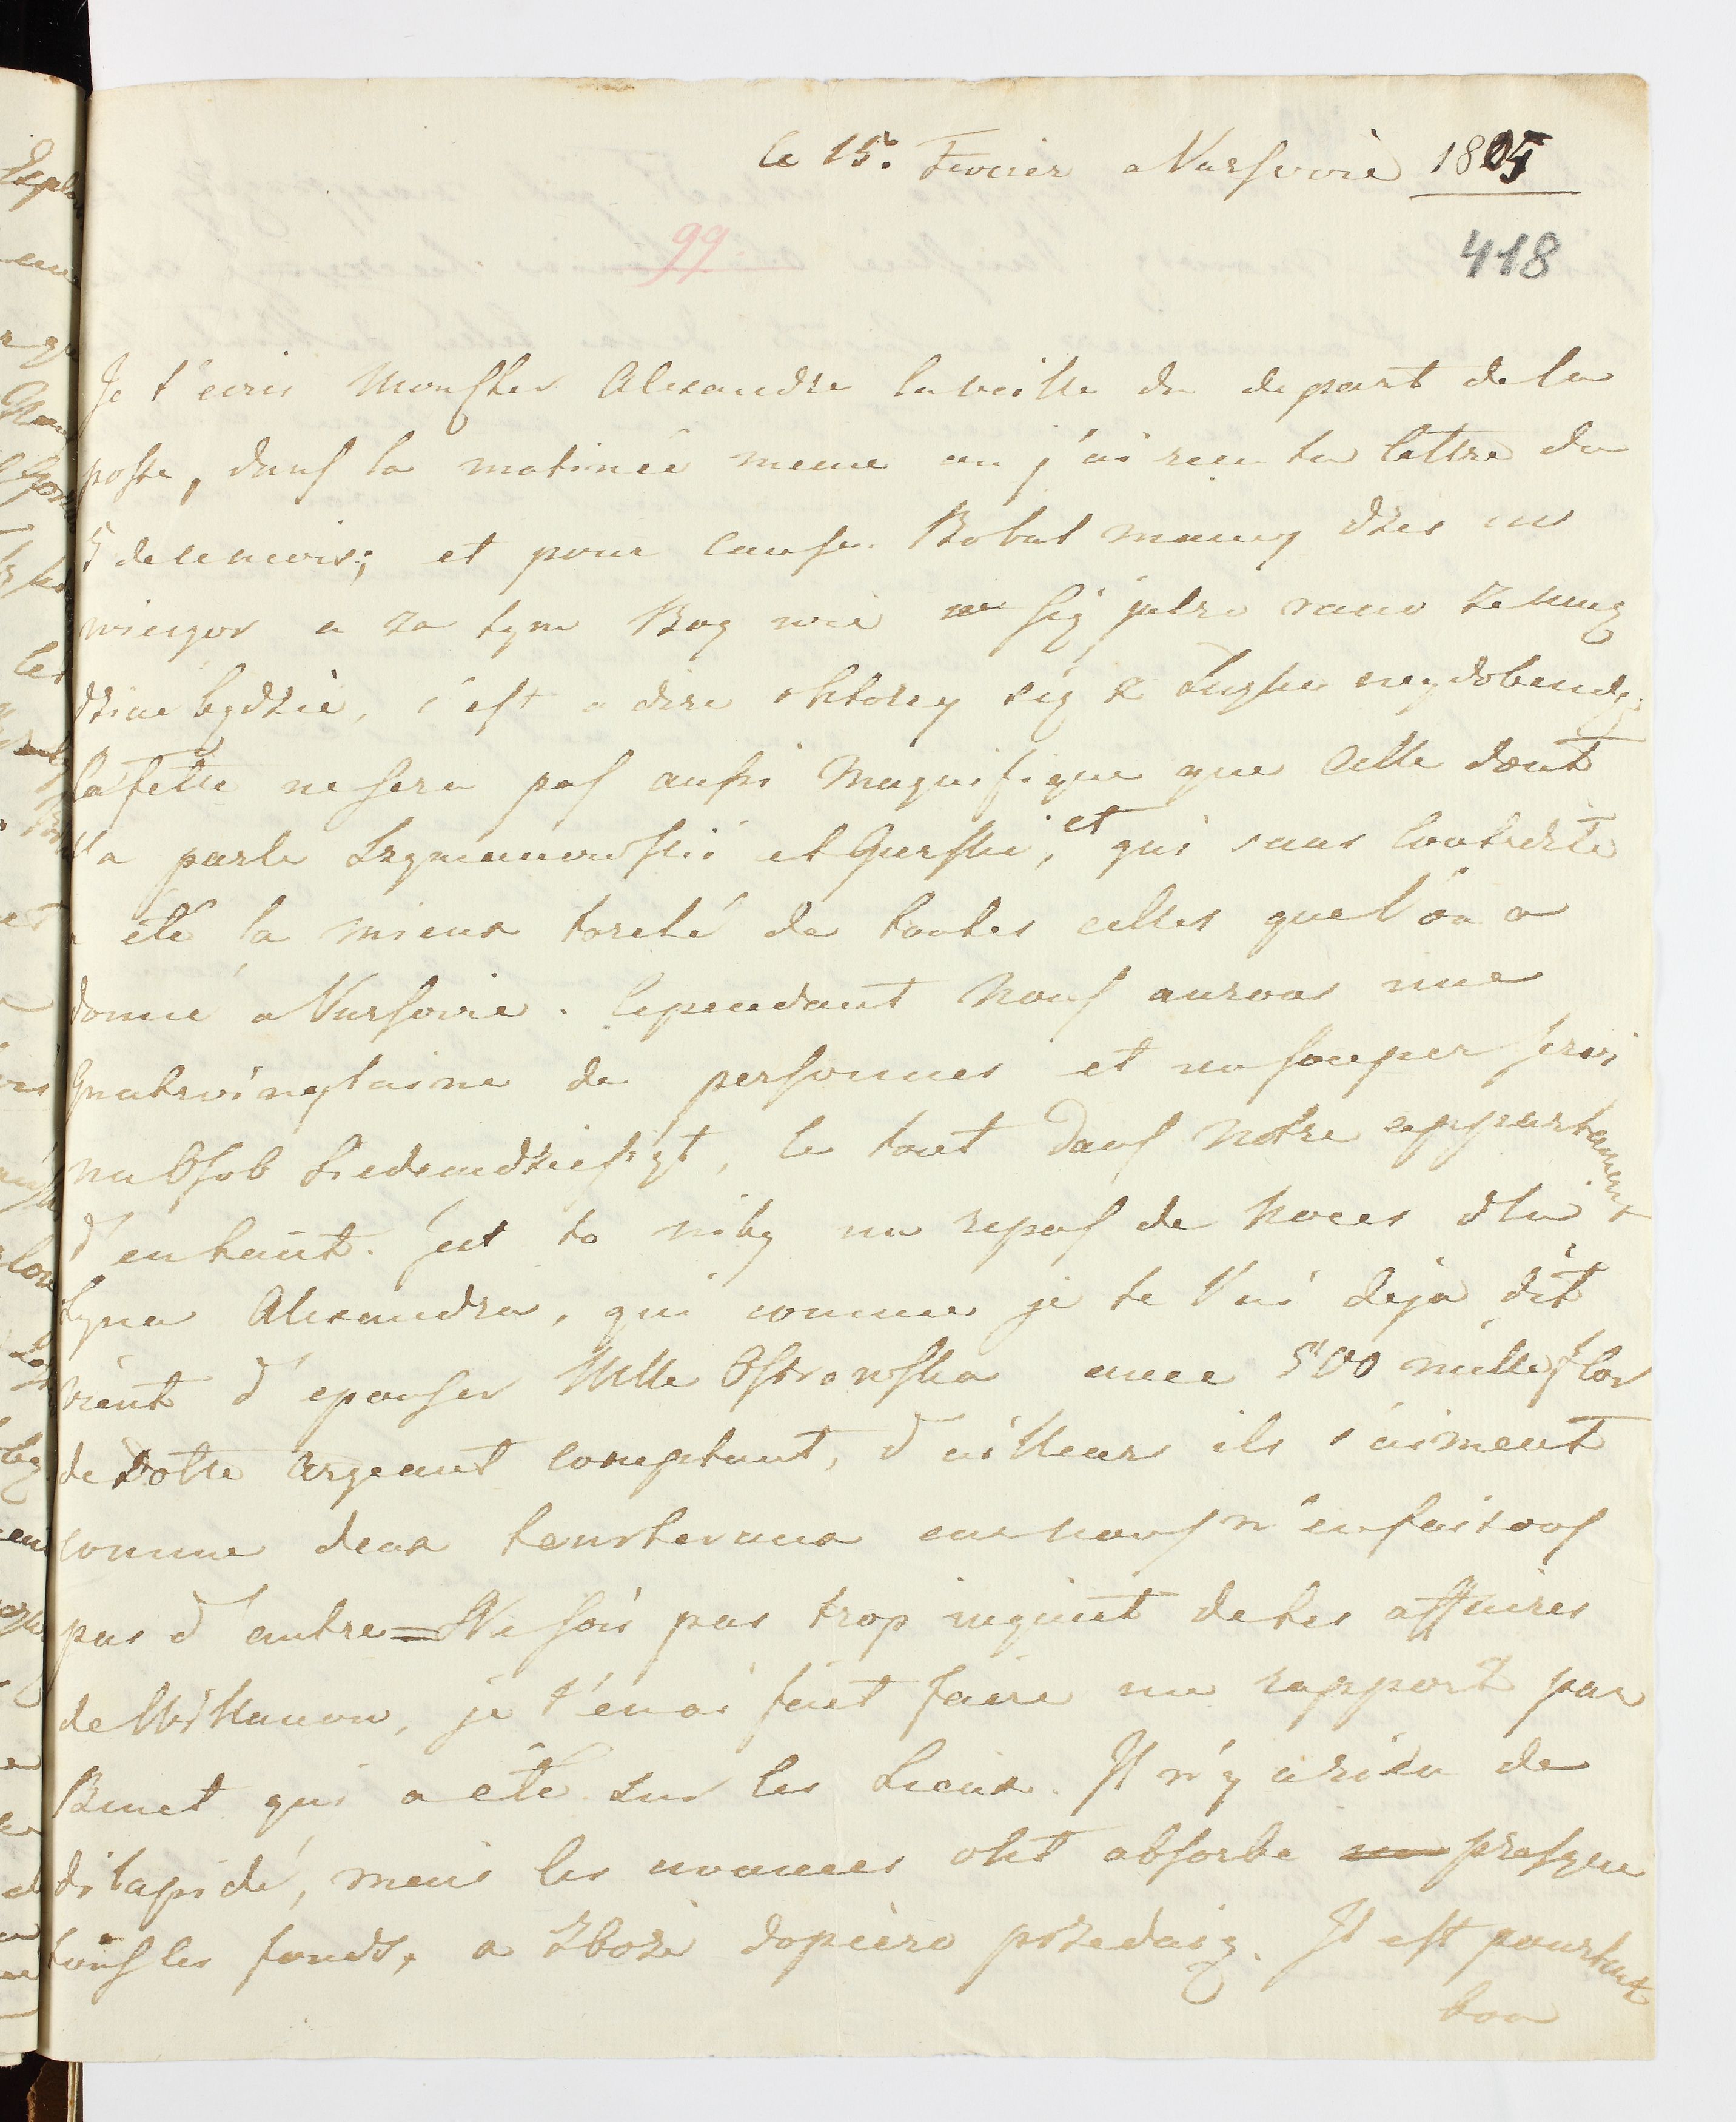 le 15. Fevrier a Varsovie 1805
99
418
Je t'ecris Moncher Alexandre laveille du depart dela
poste, dans la matinée meme ou j'ai reçu ta lettre du
5 decemois; et pour cause. Bobal mamy dzis
wieczor a za tym Bog wie się jutro rano zemną
dziac będzie, c'est a dire oktorey się z Luzka wydobende;
lafette nesera pas aussi Magnifique que Celle dont
t'a parlé Szymanowski et Gurski, et qui sans Contredit
a été la mieux de toutes celles quel'on a
donné a Varsovie. Cependant Nous aurons une
Quatrevingtaine de personnes et un souper servi
na Osob Siedemdziesiąt, le tout dans Notre appartement
d'enhaut. Jest to niby un repas de Noces dla
syna Alexandra, qui comme je te l'ai deja dit
vient d'epouser Mlle Ostrowska avec 500 mille flor
de Dotte Argeant Comptant, d'ailleurs ils s'aiment
comme deux tourteraux car nous n'enfaisons
pas d'autre = Ne sois pas trop inquiet detes affaires
de Willanow, je t'enai fait faire un rapport par
Binet qui a été sur les Lieux. Il n'y arien de
dilapidé, mais les avances ont absorbe presque
tous les fonds, a Zboze dopiero przedaią. Il est pourtant
bon